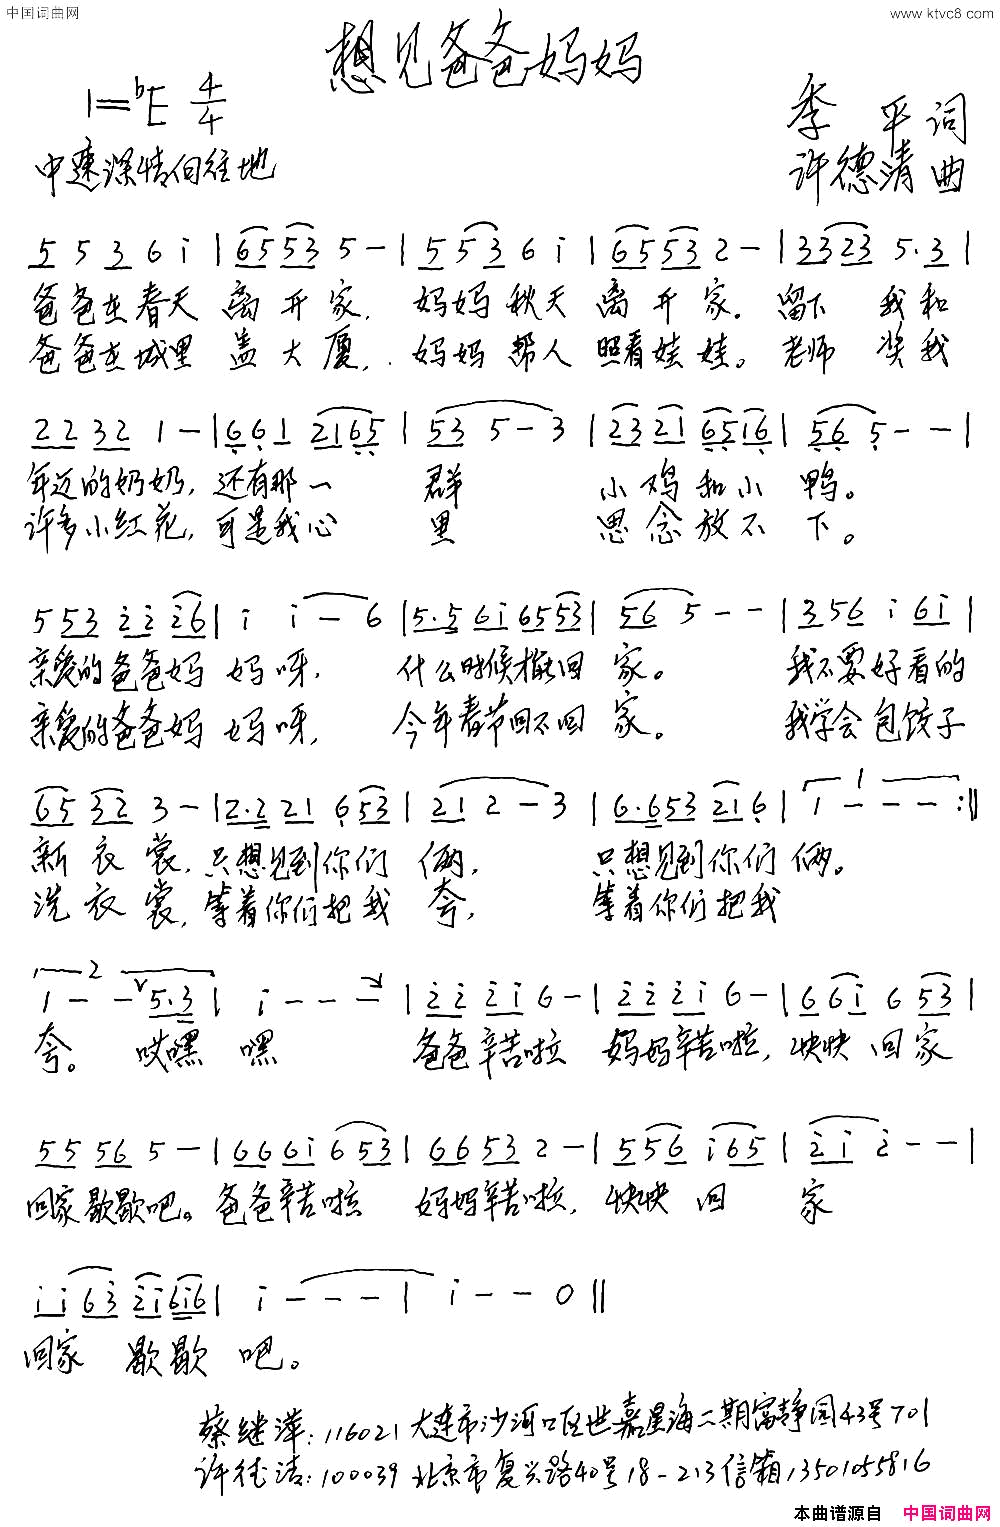 中国词曲网
www.ktvc8.com
想见爸爸妈妈
1=♭E 4/4
李平词
中速深情向往地
许德清曲
5 5 3 6 i | 6553 5 - | 5 53 6 i | 6553 2 - | 3323 5·3 |
爸爸在春天 离开家, 妈妈秋天 离开家。留下 我和
爸爸在城里 盖大厦, 妈妈帮人 照看娃娃。老师 奖我
22 32 1 - | 661 2165 | 53 5 - 3 | 23 21 6516 | 56 5 - - |
年迈的奶奶, 还有那一 群 小鸡和小 鸭。
许多小红花, 可是我心 里 思念放不 下。
5 53 22 26 | i i - 6 | 5·5 6i 6553 | 56 5 - - | 356 i 6i |
亲爱的爸爸妈 妈呀, 什么时候能回 家。 我不要好看的
亲爱的爸爸妈 妈呀, 今年春节回不回 家。 我学会包饺子
65 32 3 - | 2·2 21 653 | 21 2 - 3 | 6·653 216 | 1 1 - - - :||
新衣裳, 只想见到你们 俩, 只想见到你们 俩。
洗衣裳, 等着你们把我 夸, 等着你们把我
2 1 - - 5·3 | i - - - | 22 2i 6 - | 22 2i 6 - | 66i 6 53 |
夸。 哎嘿 嘿 爸爸辛苦啦 妈妈辛苦啦, 快快 回家
55 56 5 - | 666i 653 | 6653 2 - | 556 i65 | 2i 2 - - |
回家歇歇吧。爸爸辛苦啦 妈妈辛苦啦, 快快 回 家
ii 63 2i6i6 | i - - - | i - - 0 ||
回家 歇歇 吧。
蔡继萍: 116021 大连市沙河口区世嘉星海二期富静园43号701
许德清: 100039 北京市复兴路40号18-213信箱13501055816
本曲谱源自 中国词曲网